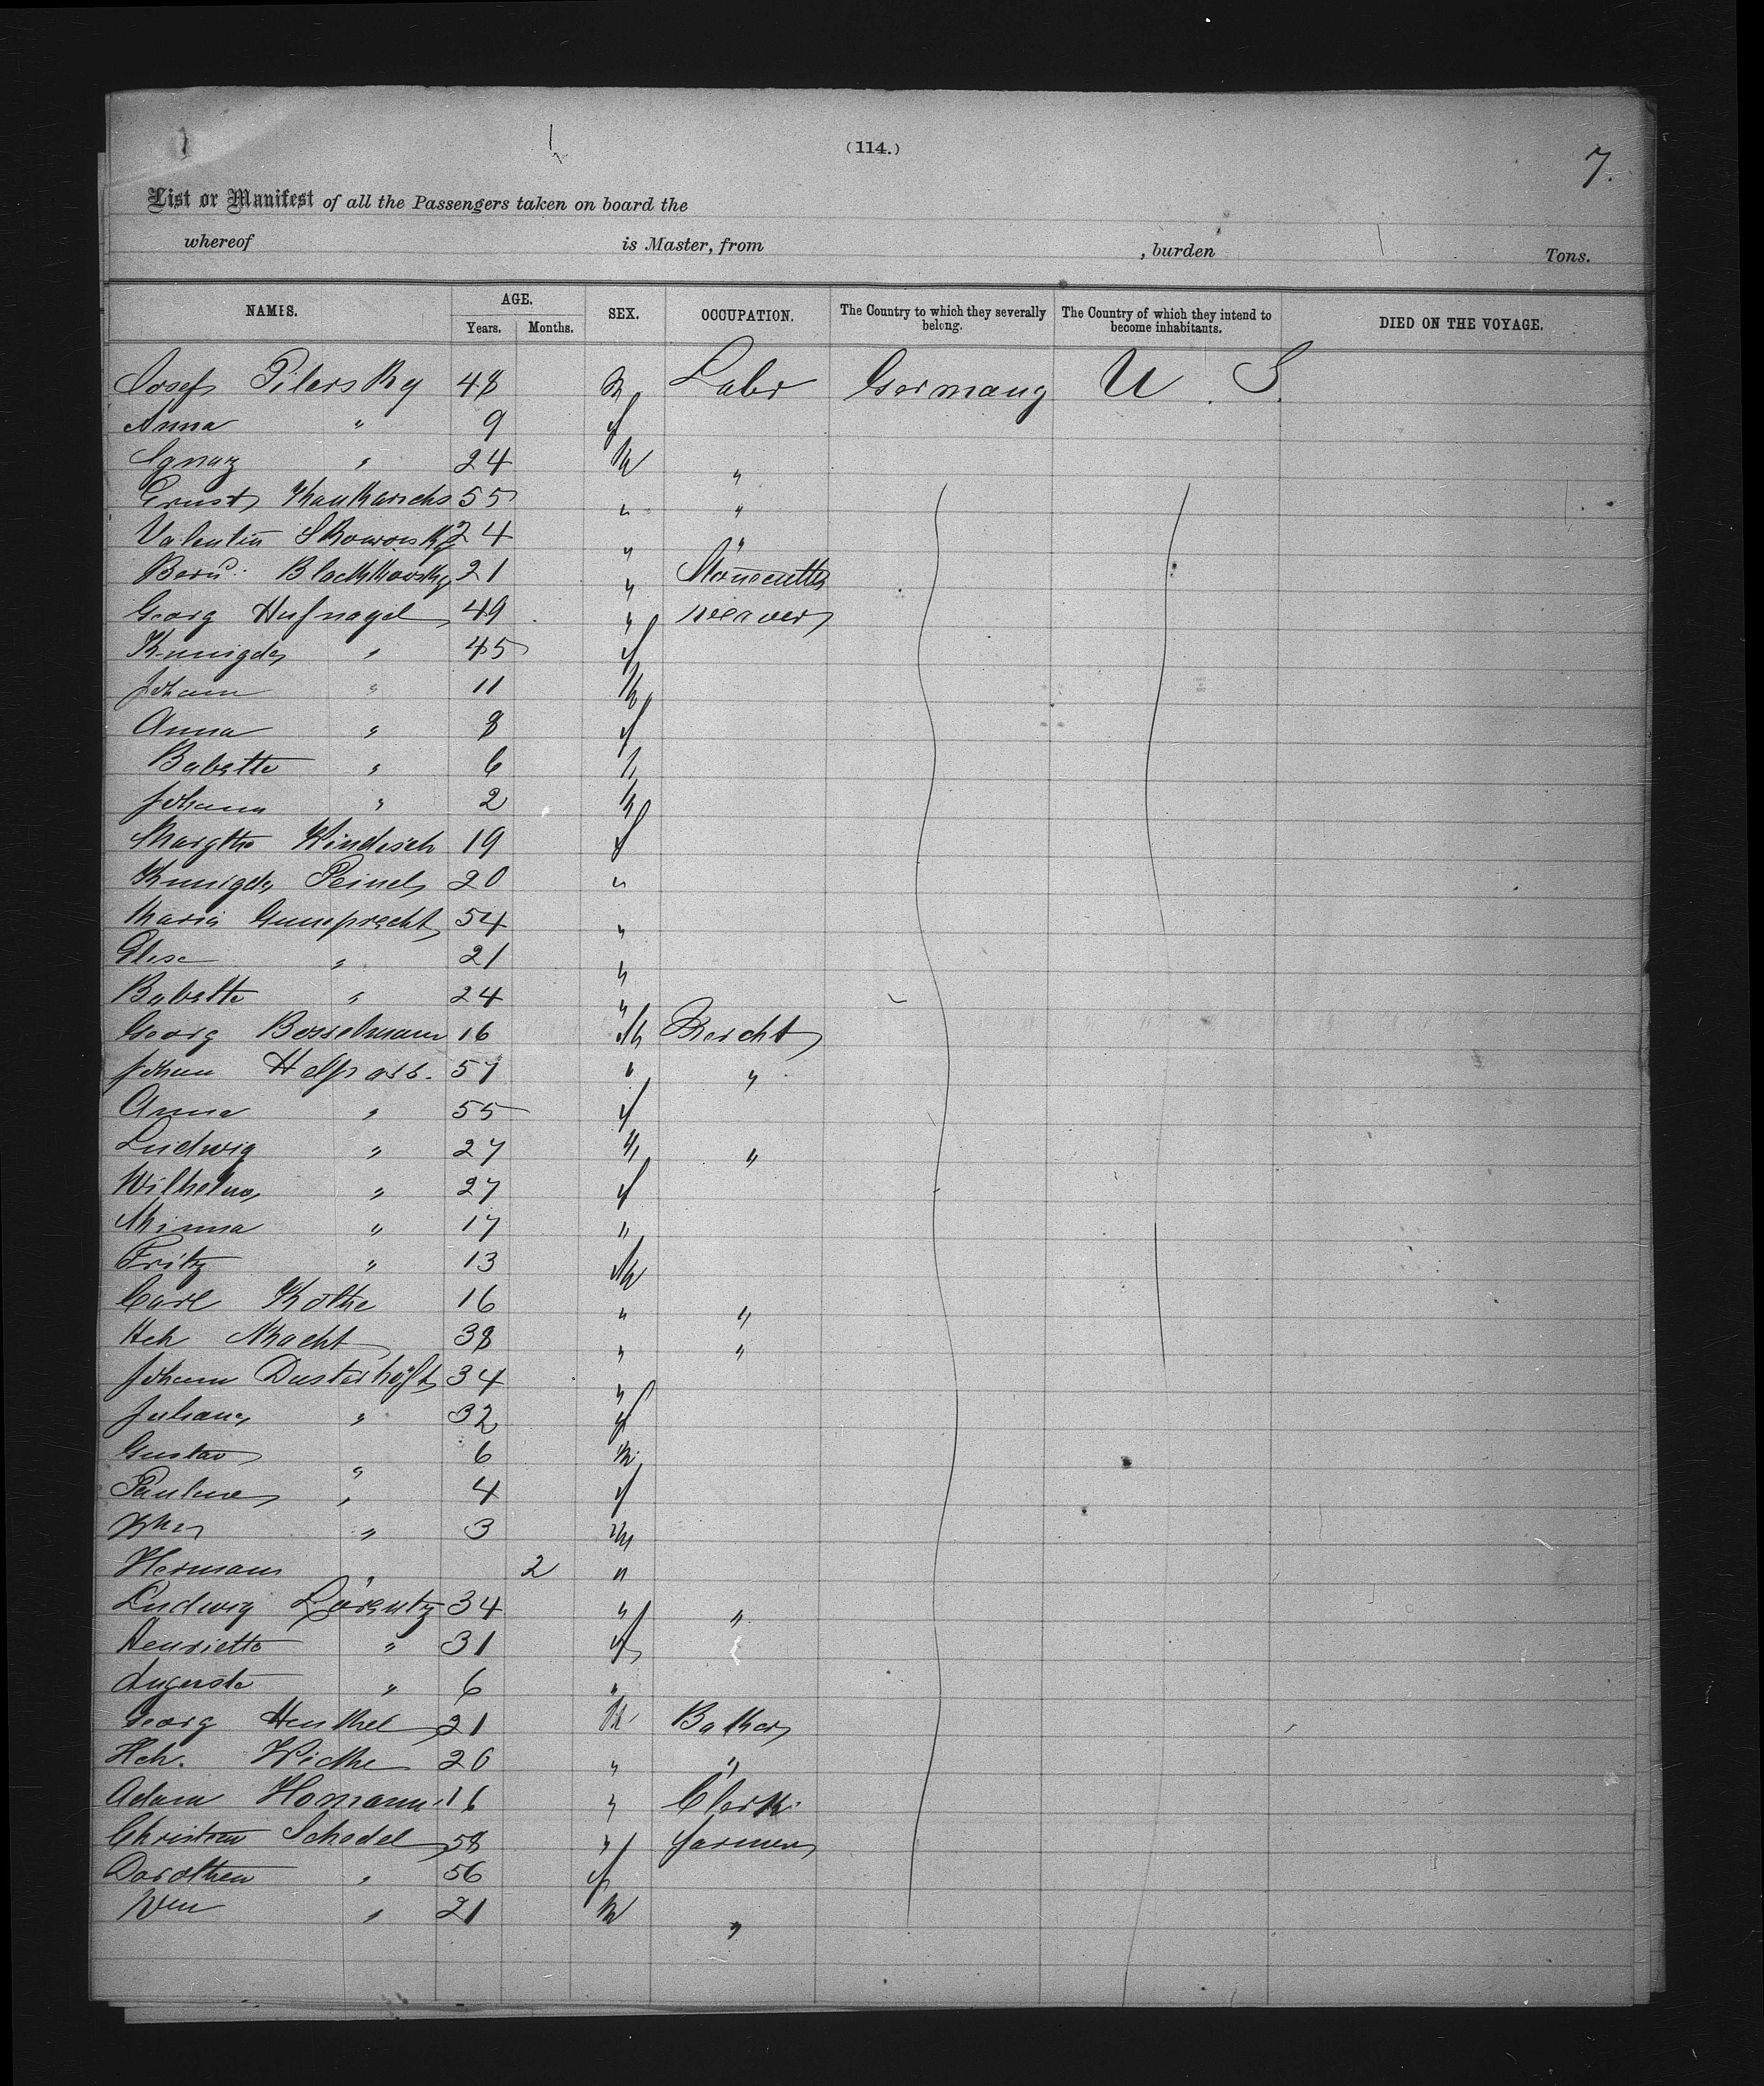 (114.)
7.
List or Manifest of all the Passengers taken on board the
whereof is Master, from , burden Tons.
NAMES. AGE. SEX. OCCUPATION. The Country to which they severally belong. The Country of which they intend to become inhabitants. DIED ON THE VOYAGE.
Years. Months.
Josef Pilarsky 48 m Labr Germany U. S.
Anna " 9 f
Ignaz " 24 m "
Ernst 55 " "
Valentin Skowronsky 24 " "
Bern. 21 " Stonecutter
Georg Hufnagel 49 " weaver
Kunigda " 45 f
Johann " 11 m
Anna " 8 f
Babette " 6 "
Johann " 2 m
Margthe Windisch 19 f
Kunigda Peinel 20 "
Maria Gumprecht 54 "
Elise " 21 "
Babette " 24 "
Georg Bosselmann 16 m
Johann 57 " "
Anna " 55 f
Ludwig " 27 m "
Wilhelma " 27 f
Minna " 17 "
Fritz " 13 m
Carl Kothe 16 " "
Hch Macht 38 " "
Johann Dusterhöft 34 "
Juliana " 32 f
Gustav " 6 m
Pauline " 4 f
" 3 m
Hermann " 2 "
Ludwig Lorentz 34 " "
Henriette " 31 f
Auguste " 6 "
Georg Henkel 21 m Baker
Hch. Wicke 20 " "
Adam Homann 16 " Clerk
Christian Schadel 58 " farmer
Dorothea " 56 f
Wm " 21 m "